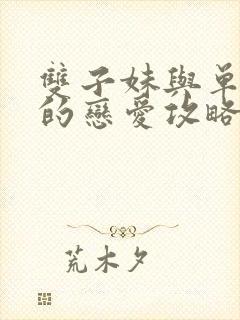 雙子妹與單
的戀愛攻略
荒木夕